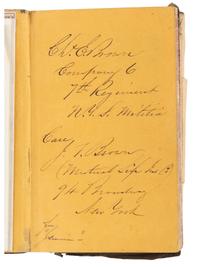 Chs. E. Brown
Company 6
7th Regiment
N.Y.S. Militia
Care
J. T. Brown
(Mutual Life Ins Co
94 Broadway
New York